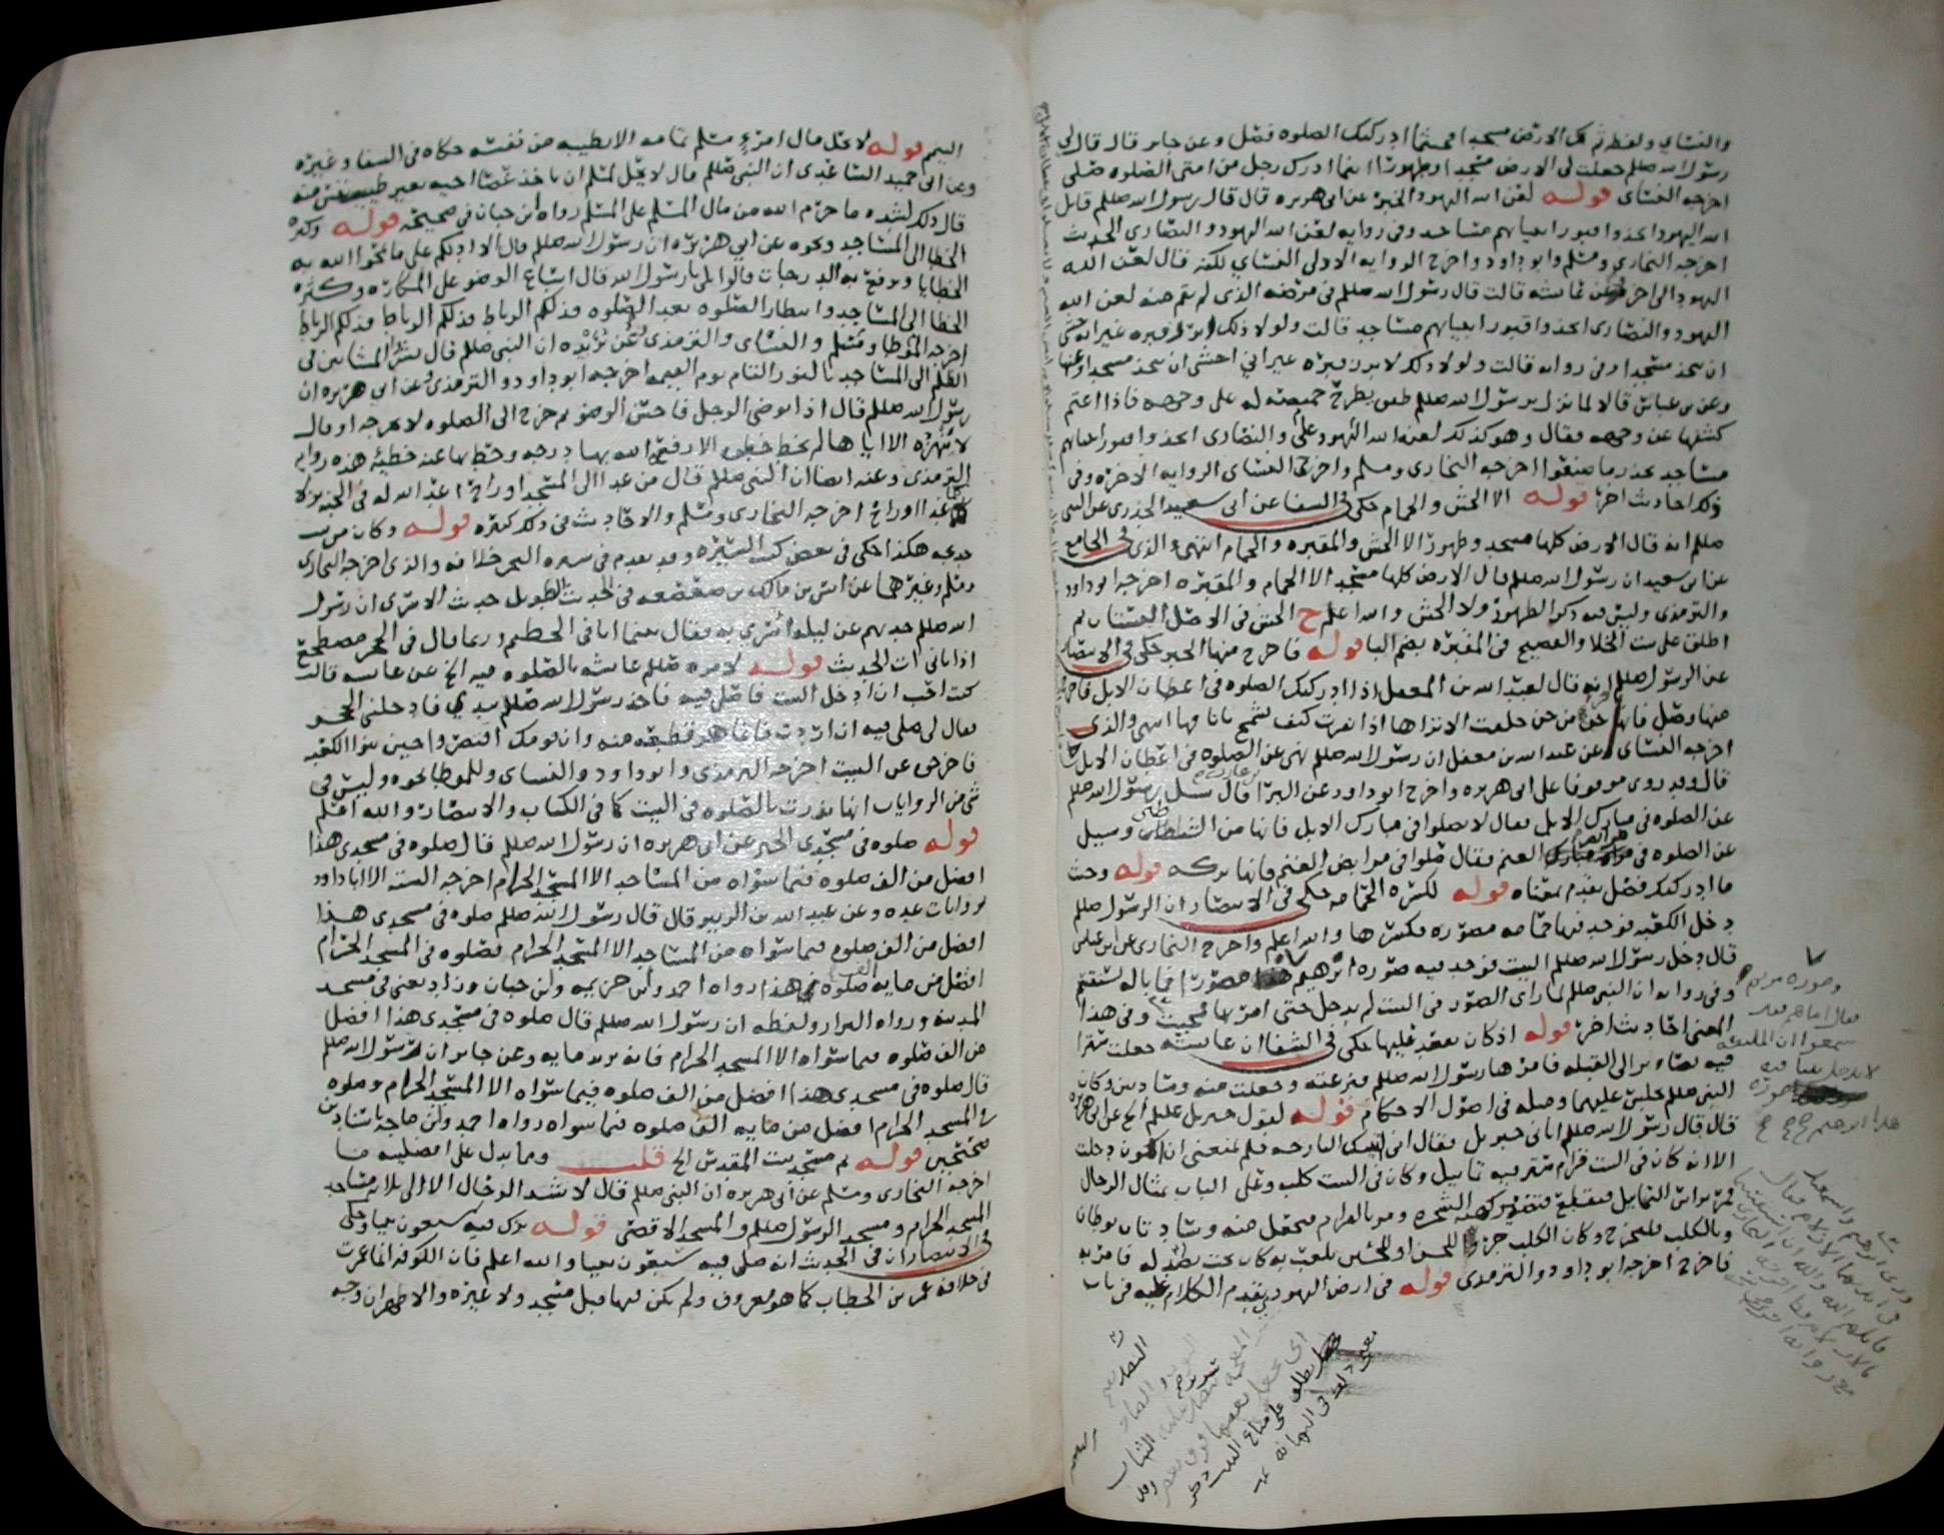 والنسائي ولفظه تلك الارض مسجدا فحيثما ادركتك الصلوه فصل وعن جابر قال قال لي
رسول الله صللم جعلت لي الارض مسجدا وطهورا اينما ادرك رجل من امتي الصلوه صلى
اخرجه النسائى قوله لعن الله اليهود الخبر عن ابي هريره قال قال رسول الله صللم قاتل
الله اليهود اتخذوا قبور انبيائهم مساجد وفي روايه لعن الله اليهود والنصارى الحديث
اخرجه البخاري ومسلم وابو داود واخرج الروايه الاولى النسائي لكنه قال لعن الله
اليهود الى اخره وعن عائشه قالت قال رسول الله صللم في مرضه الذي لم يقم منه لعن الله
اليهود والنصارى اتخذوا قبور انبيائهم مساجد قالت ولولا ذلك ابرز قبره غير انه خشي
ان يتخذ مسجدا وفي روايه قالت ولولا ذلك لابرز قبره غير اني اخشى ان يتخذ مسجدا وعنها
وعن بن عباس قالا لما نزل برسول الله صللم طفق يطرح خميصه له على وجهه فاذا اغتم
كشفها عن وجهه فقال وهو كذلك لعنه الله على اليهود والنصارى اتخذوا قبور انبيائهم
مساجد يحذر ما صنعوا اخرجه البخاري ومسلم واخرج النسائي الروايه الاخره وفي
ذلك احاديث اخر قوله الا الحش والحمام حكى في الشفا عن ابي سعيد الخدري عن النبي
صللم انه قال الارض كلها مسجد وطهور الا الحش والمقبره والحمام انتهى والذي في الجامع
عن ابي سعيد ان رسول الله صللم قال الارض كلها مسجد الا الحمام والمقبره اخرجه ابو داود
والترمذي وليس فيه ذكر الطهور ولا الحش والله اعلم ح الحش في الاصل البستان ثم
اطلق على بيت الخلا والفصيح في المقبره بضم البا قوله فاخرج منها الخبر حكى في الانتصار
عن الرسول صللم انه قال لعبد الله بن المغفل اذا ادركتك الصلوه في اعطان الابل فاخرج
منها وصل فانها جن من جن خلقت الا تراها اذا نفرت كيف تشمخ بانافها انتهى والذي
اخرجه النسائى عن عبد الله بن مغفل ان رسول الله صللم نهى عن الصلوه في اعطان الابل
قال وقد روي موقوفا على ابي هريره واخرج ابو داود عن البرا بن عازب قال سئل رسول الله صللم
عن الصلوه في مبارك الابل فقال لا تصلوا في مبارك الابل فانها من الشياطين وسيل
عن الصلوه في مرابض الغنم فقال صلوا في مرابض الغنم فانها بركه قوله وحيث
ما ادركتك فصل تقدم بمعناه قوله لكسره الحمامه حكى في الانتصار ان الرسول صللم
دخل الكعبه فوجد فيها حمامه مصوره فكسرها والله اعلم واخرج البخاري عن ابن عباس
قال دخل رسول الله صللم البيت فوجد فيه صوره ابرهيم مصورا فما باله يستقسم
وفي روايه ان النبي صللم لما راى الصور في البيت لم يدخل حتى امر بها فمحيت وفي هذا
المعنى احاديث اخر قوله اذ كان بعقد عليها حكى في الشفا ان عائشه جعلت سترا
فيه تصاوير الى القبله فامرها رسول الله صللم فنزعته وجعلت منه وسادتين وكان
النبي صللم يجلس عليهما ومثله في اصول الاحكام قوله لقول جبريل عللم الخ عن ابي هريره
قال قال رسول الله صللم اتاني جبريل فقال اني اتيتك البارحه فلم يمنعني ان اكون دخلت
الا انه كان في البيت قرام ستر فيه تماثيل وكان في البيت كلب وعلى الباب تمثال الرجال
فمر براس التماثيل فيقطع فتصير كهيئه الشجره ومر بالقرام فيجعل منه وسادتان توطان
وبالكلب فليخرج وكان الكلب جروا للحسن او للحسين يلعب به كان تحت نضد له فامر به
فاخرج اخرجه ابو داود والترمذي قوله في ارض اليهودي يقدم الكلام عليه في باب
وصوره مريم
فقال اما هم فقد
سمعوا ان الملائكه
لا تدخل بيتا فيه
صوره
هذا ابراهيم
التيمم قوله لا يحل مال امرئ مسلم تمامه الا بطيبه من نفسه حكاه في الشفا وغيره
وعن ابي حميد الساعدي ان النبي صللم قال لا يحل لمسلم ان ياخذ عصا اخيه بغير طيب نفس منه
قال ذلك لشده ما حرم الله من مال المسلم على المسلم رواه ابن حبان في صحيحه قوله وكثره
الخطا الى المساجد ونحوه عن ابي هريره ان رسول الله صللم قال الا ادلكم على ما يمحوا الله به
الخطايا ويرفع به الدرجات قالوا بلى يا رسول الله قال اسباغ الوضو على المكاره وكثره
الخطا الى المساجد وانتظار الصلوه بعد الصلوه فذلكم الرباط فذلكم الرباط فذلكم الرباط
اخرجه الموطا ومسلم والنسائي والترمذي وعن بريده ان النبي صللم قال بشر المشائين في
الظلم الى المساجد بالنور التام يوم القيمه اخرجه ابو داود والترمذي وعن ابي هريره ان
رسول الله صللم قال اذا توضى الرجل فاحسن الوضو ثم خرج الى الصلوه لا يخرجه او قال
لا ينهزه الا اياها لم يخط خطوه الا رفع الله بها درجه وحط بها عنه خطيئه هذه روايه
الترمذي وعنه ايضا ان النبي صللم قال من غدا الى المسجد او راح اعد الله له في الجنه نزلا
كلما غدا او راح اخرجه البخاري ومسلم والاحاديث في ذلك كثيره قوله وكان من بيت
خديجه هكذا حكى في بعض كتب السيره وقد تقدم في سيره البحر خلافه والذي اخرجه البخاري
ومسلم وغيرهما عن انس بن مالك بن صعصعه في الحديث الطويل حديث الاسرى ان رسول
الله صللم حدثهم عن ليله اسري به فقال بينما انا في الحطيم وربما قال في الحجر مضطجع
اذ اتاني ات الحديث قوله لامره صللم عائشه بالصلوه فيه الخ عن عائشه قالت
كنت احب ان ادخل البيت فاصلي فيه فاخذ رسول الله صللم بيدي فادخلني الحجر
فقال لي صلي فيه ان اردت فانما هو قطعه منه وان قومك اقتصروا حين بنوا الكعبه
فاخرجوه عن البيت اخرجه الترمذي وابو داود والنسائي وللموطا نحوه وليس في
شي من الروايات انها نذرت بالصلوه في البيت كما في الكتاب والانتصار والله اعلم
قوله صلوه في مسجدي الخبر عن ابي هريره ان رسول الله صللم قال صلوه في مسجدي هذا
افضل من الف صلوه فيما سواه من المساجد الا المسجد الحرام اخرجه السته الا ابا داود
بروايات عده وعن عبد الله بن الزبير قال قال رسول الله صللم صلوه في مسجدي هذا
افضل من الف صلوه فيما سواه من المساجد الا المسجد الحرام وصلوه في المسجد الحرام
افضل من مايه الف صلوه في هذا رواه احمد وابن خزيمه وابن حبان وزاد يعني في مسجد
المدينه ورواه البزار ولفظه ان رسول الله صللم قال صلوه في مسجدي هذا افضل
من الف صلوه فيما سواه الا المسجد الحرام فانه يزيد مايه وعن جابر ان رسول الله صللم
قال صلوه في مسجدي هذا افضل من الف صلوه فيما سواه الا المسجد الحرام وصلوه
في المسجد الحرام افضل من مايه الف صلوه فيما سواه رواه احمد وابن ماجه باسنادين
صحيحين قوله ثم مسجد بيت المقدس الخ قلت ومما يدل على افضليته ما
اخرجه البخاري ومسلم عن ابي هريره ان النبي صللم قال لا تشد الرحال الا الى ثلاثه مساجد
المسجد الحرام ومسجد الرسول صللم والمسجد الاقصى قوله بزك فيه سبعون نبيا وحكى
في الانتصار ان في الحديث انه صلى فيه سبعون نبيا والله اعلم فان الكوفه انما عمرت
في خلافه عمر بن الخطاب كما هو معروف ولم يكن فيها قبل مسجد ولا غيره والاظهر ان وجه